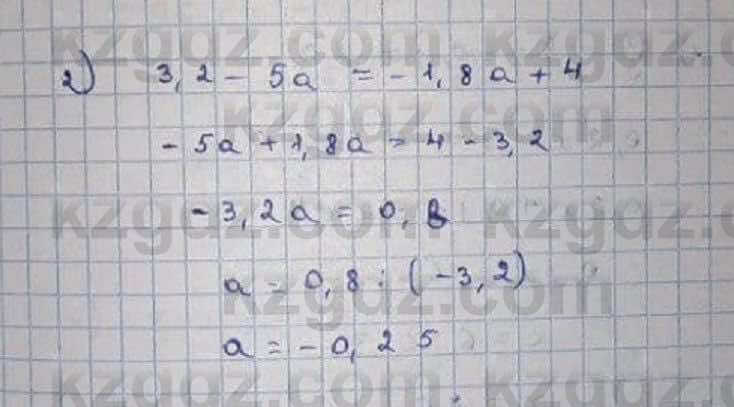 kzgdz.com kzgdz.com
2) 3,2 - 5a = -1,8a + 4
kzgdz.com
-5a + 1,8a = 4 - 3,2
kzgdz.com kzgdz.com
-3,2a = 0,8
kzgdz.com
a = 0,8 : (-3,2)
a = -0,25
kzgdz.com kzgdz.com